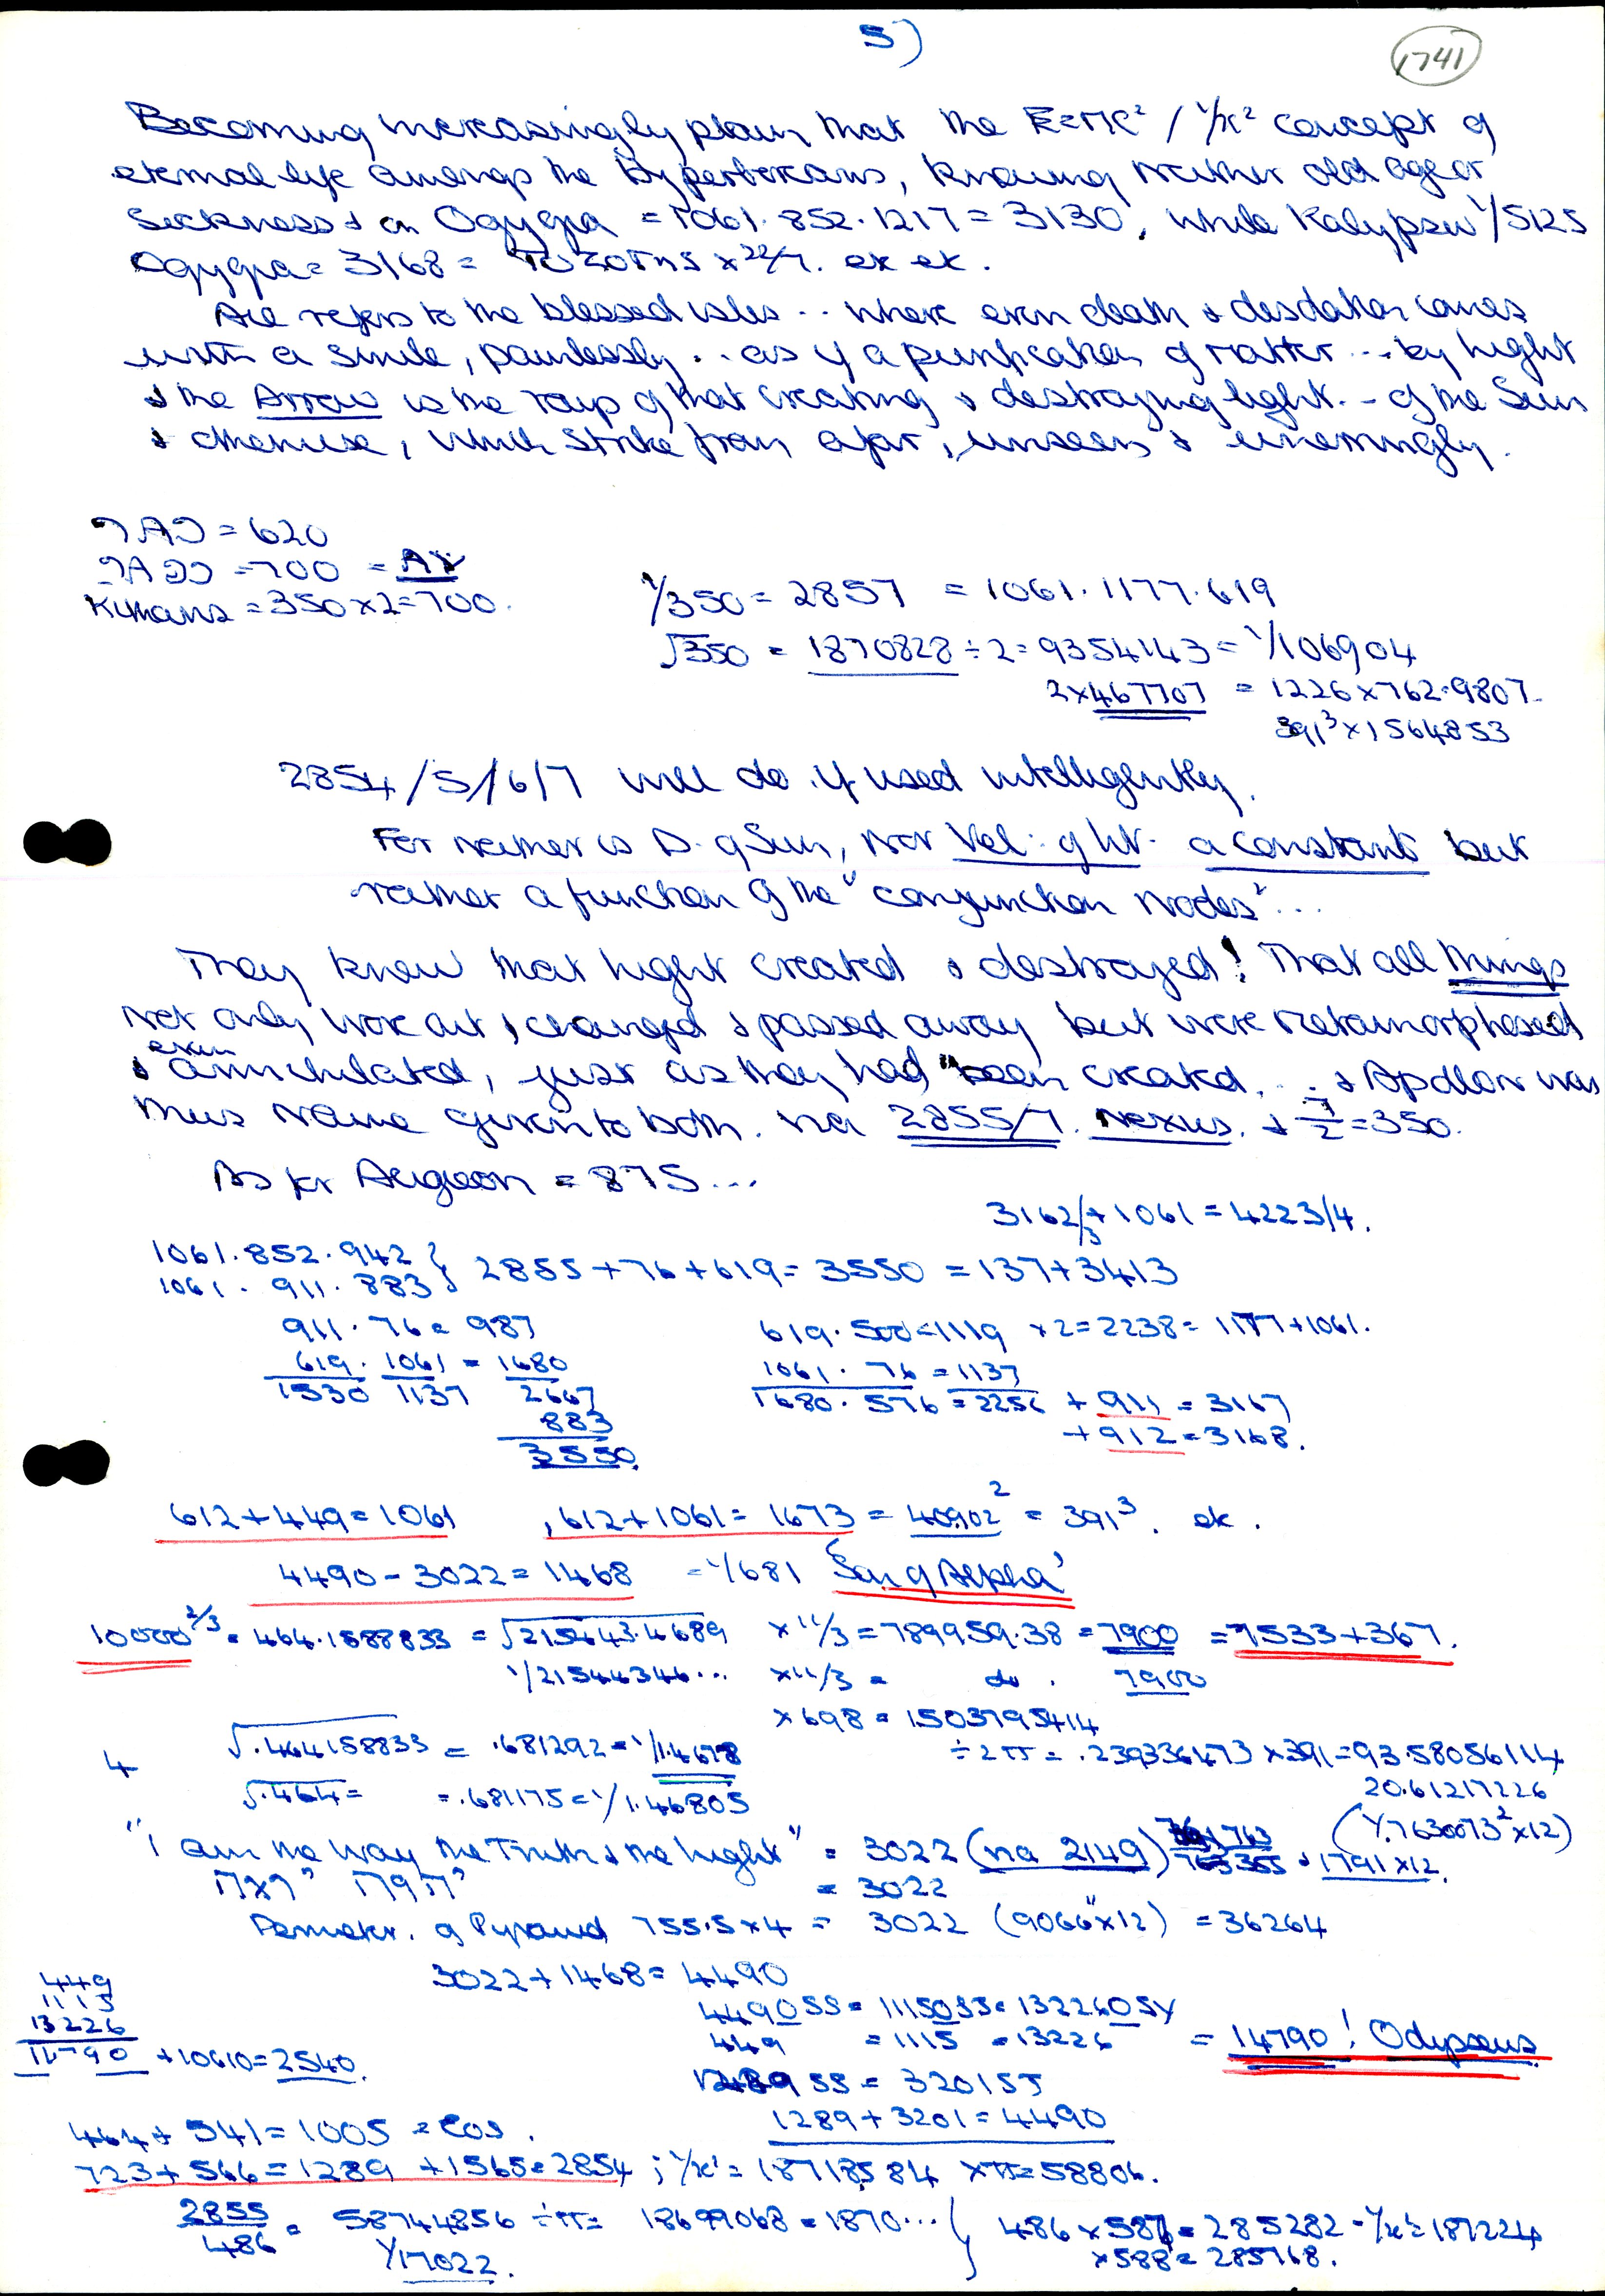 5)
1741
Becoming increasingly plain that the E=MC² / 1/x² concept of
eternal life amongs the Hyperboreans, knowing neither old age or
Sickness & on Ogygia = 1061.852.1217 = 3130, while Kalypsw 1/5125
Ogygia = 3168 = x 22/7. ex ex.
All refers to the blessed isles .. where even death & desolation comes
with a smile, painlessly .. as if a purification of matter ... by light
& the Arrow is the rays of that creating & destroying light. - of the Sun
& otherwise, which strike from afar, unseen & unerringly.
= 620
= 700 =
= 350 x 2 = 700.
1/350 = 2857 = 1061.1177.619
√350 = 1870828 ÷ 2 = 9354143 = 1/106904
2 x 467707 = 1226 x 762.9807
391³ x 1564853
2854/5/6/7 will do if used intelligently.
For neither is D. of Sun, nor Vel: of Lt. a constant but
rather a function of the "conjunction Nodes"...
They knew that light created & destroyed! That all things
not only wore out, changed & passed away but were metamorphosed
& even annihilated, just as they had been created. .. & Apollon was
thus name given to both. via 2855/7. Nexus. & 7/2 = 350.
As for Augeon = 875...
3162/3 + 1061 = 4223/4.
1061.852.942 }
1061.911.883 } 2855 + 76 + 619 = 3550 = 137 + 3413
911.76 = 987
619.1061 = 1680
1530 1137 2667
883
3550.
619.500 = 1119 x 2 = 2238 = 1177 + 1061.
1061.76 = 1137
1680.576 = 2256 + 911 = 3167
+ 912 = 3168.
612 + 449 = 1061 , 612 + 1061 = 1673 = 40902² = 391³. ek.
4490 - 3022 = 1468 = 1/681 'Son of Alpha'
10000 2/3 = 464.1588833 = √215443.4689 x 11/3 = 789959.38 = 7900 = 7533 + 367.
1/21544346... x 11/3 = do. 7900
x 698 = 1503795414
4 √.464158833 = .681292 = 1/1.4678
÷ 2π = .239336473 x 391 = 93.58056114
√.464 = = .681175 = 1/1.46805
20.61217226
"I am the Way the Truth & the Light" = 3022 (via 2149) & 1791 x 12.
(1/.7630073² x 12)
= 3022
Perimeter. of Pyramid 755.5 x 4 = 3022 (9066" x 12) = 36264
3022 + 1468 = 4490
449
1115
13226
14790 + 10610 = 2540.
4490 SS = 11150 SS = 132260 SY
449 = 1115 = 13226 = 14790! Odysseus.
1289 SS = 3201 SS
1289 + 3201 = 4490
464 + 541 = 1005 = Eos.
723 + 566 = 1289 + 1565 = 2854 ; 1/x² = 18718584 x π = 58806.
2855
486 = 58744856 ÷ π = 18699068 = 1870...
1/17022.
486 x 587 = 285282 - 1/x² = 187224
x 588 = 285768.